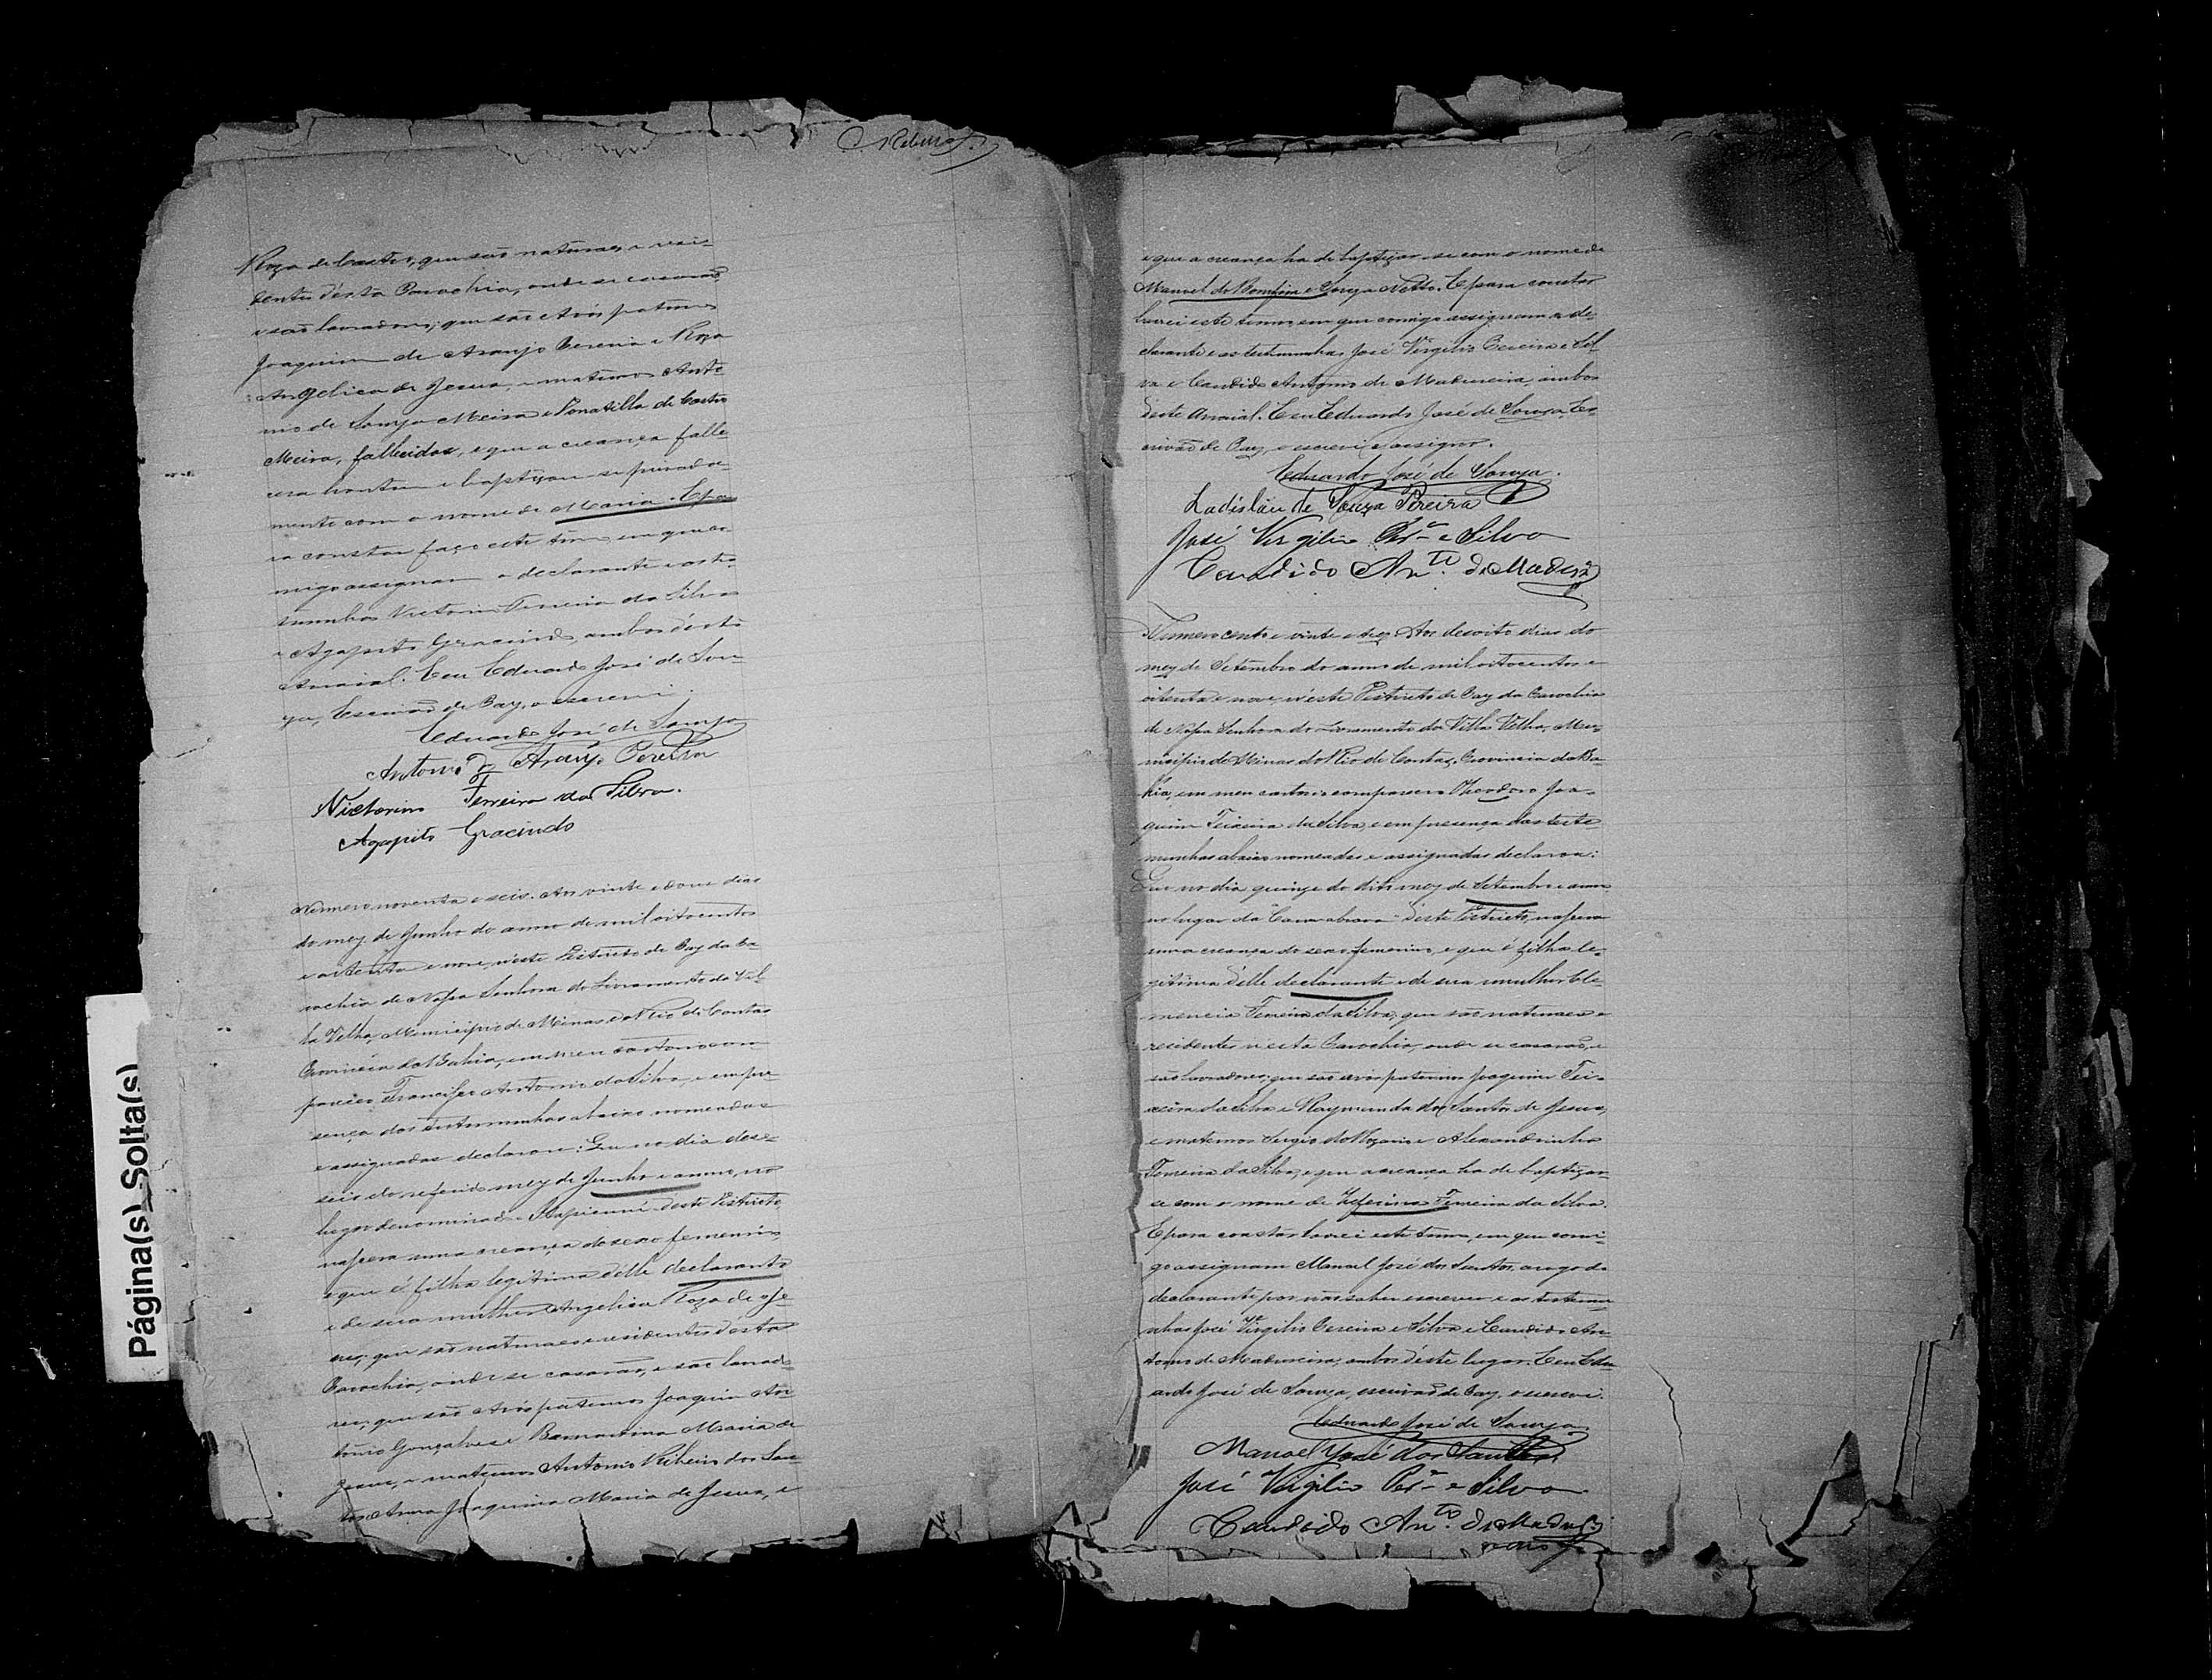 Ribeiro
Roza de Castro, que são naturaes e resi-
dentes désta Parochia, onde se casarão
e são lavradores; que são Avós paternos
Joaquim de Araujo Pereira e Roza
Angelica de Jesus, e maternos Anto-
nio de Souza Meira e Donatilla de Castro
Meira, fallecidos, e que a creança falle-
cera hontem e baptizou-se privada-
mente com o nome de Maria. E pa-
ra constar faço este têrmo, em que co-
migo assignam o declarante e as tes-
temunhas Victorino Ferreira da Silva
e Agapito Gracindo, ambos désto
Arraial. E eu Eduardo José de Sou-
za, Escrivão de Paz, o escrevi.
Eduardo José de Souza
Antonio de Araujo Pereira
Victorino Ferreira da Silva.
Agapito Gracindo
Numero noventa e seis. Aos vinte e dous dias
do mez de Junho do anno de mil oitocentos
e oitenta e nove, n'este Districto de Paz da Pa-
rochia de Nossa Senhora do Livramento da Vil-
la Velha, Municipio de Minas do Rio de Contas
Provincia da Bahia, em meu cartorio com-
pareceo Francisco Antonio da Silva, e em pre-
sença das testemunhas abaixo nomeadas
e assignadas declarou: Que no dia deze-
seis do referido mez de Junho e anno, no
lugar denominado - deste Districto,
nascera uma creança do sexo femenino,
e que é filha legitima délle declarante
e de sua mulher Angelica Roza de Je-
sus, que são naturaes e residentes désta
Parochia, onde se casarão, e são lavrado-
res; que são Avós paternos Joaquim An-
tonio Gonçalves e Bernardina Maria de
Jesus, e maternos Antonio Ribeiro dos San-
tos e Anna Joaquina Maria de Jesus, e
e que a creança ha de baptizar-se com o nome de
Manoel do Bomfim e Souza Netto. E para constar
lavrei este termo, em que comigo assignam o de-
clarante e as testemunhas José Virgilio Pereira e Sil-
va e Candido Antonio de Madureira, ambos
deste Arraial. E eu Eduardo José de Souza, Es-
crivão de Paz, o escrevi e assigno.
Eduardo José de Souza.
Ladisláu de Souza Pereira
José Virgilio Perª e Silva
Candido Antº de Madurª
Numero cento e vinte e tres. Aos desoito dias do
mez de Setembro do anno de mil oitocentos e
oitenta e nove, n'este Districto de Paz da Parochia
de Nossa Senhora do Livramento da Villa Velha, Mu-
nicipio de Minas do Rio de Contas, Provincia da Ba-
hia, em meu cartorio compareceo Theodoro Joa-
quim Teixeira da Silva, e em presença das teste-
munhas abaixo nomeadas e assignadas declarou:
Que no dia quinze do dito mez de Setembro e anno
no lugar da "Cannabrava" deste Districto, nascera
uma creança do sexo femenino, e que é filha le-
gitima délle declarante e de sua mulher Cle-
mencia Ferreira da Silva, que são naturaes e
residentes n'esta Parochia, onde se casarão, e
são lavradores; que são avós paternos Joaquim Tei-
xeira da Silva e Raymunda dos Santos de Jesus,
e maternos Sergio do Rozario e Alexandrinha
Ferreira da Silva, e que a creança ha de baptizar-
se com o nome de Zeferina Ferreira da Silva.
E para constar lavrei este termo, em que comi-
go assignam Manoel José dos Santos, a rogo do
declarante por não saber escrever e as testemu-
nhas José Virgilio Pereira e Silva e Candido An-
tonio de Madureira, ambos déste lugar. E eu Edu-
ardo José de Souza, escrivão de Paz, o escrevi.
Eduardo José de Souza
Manoel José dos Santos
José Virgilio Perª e Silva
Candido Antº de Madu-
Página(s) Solta(s)